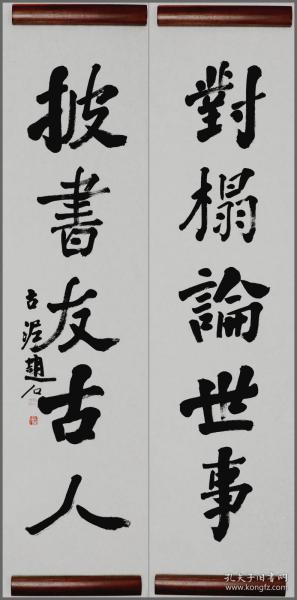 對榻論世事
披書友古人
古泥趙石
孔夫子旧书网
www.kongfz.com